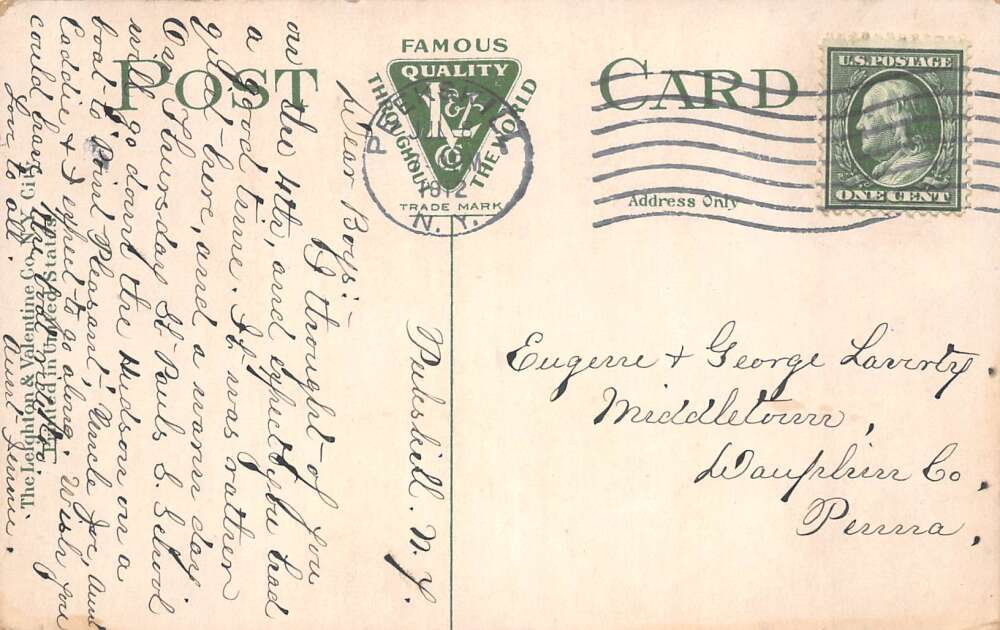 POST CARD
FAMOUS
QUALITY
THROUGHOUT THE WORLD
TRADE MARK
PEEKSKILL
1912
N. Y.
U.S. POSTAGE
ONE CENT
Address Only
Eugene & George Laverty,
Middletown,
Dauphin Co,
Penna,
Peekskill. N. Y.
Dear Boys:-
I thought of you
on the 4th, and expect you had
a good time. It was rather
quiet here, and a warm day
On Thursday St. Pauls S. School
will go down the Hudson on a
boat to Point Pleasant, Uncle Joe, Aunt
Caddie & I expect to go along. Wish you
could have
Love to all. Aunt Jennie.
The Leighton & Valentine Co., N. Y. City.
Printed in United States.